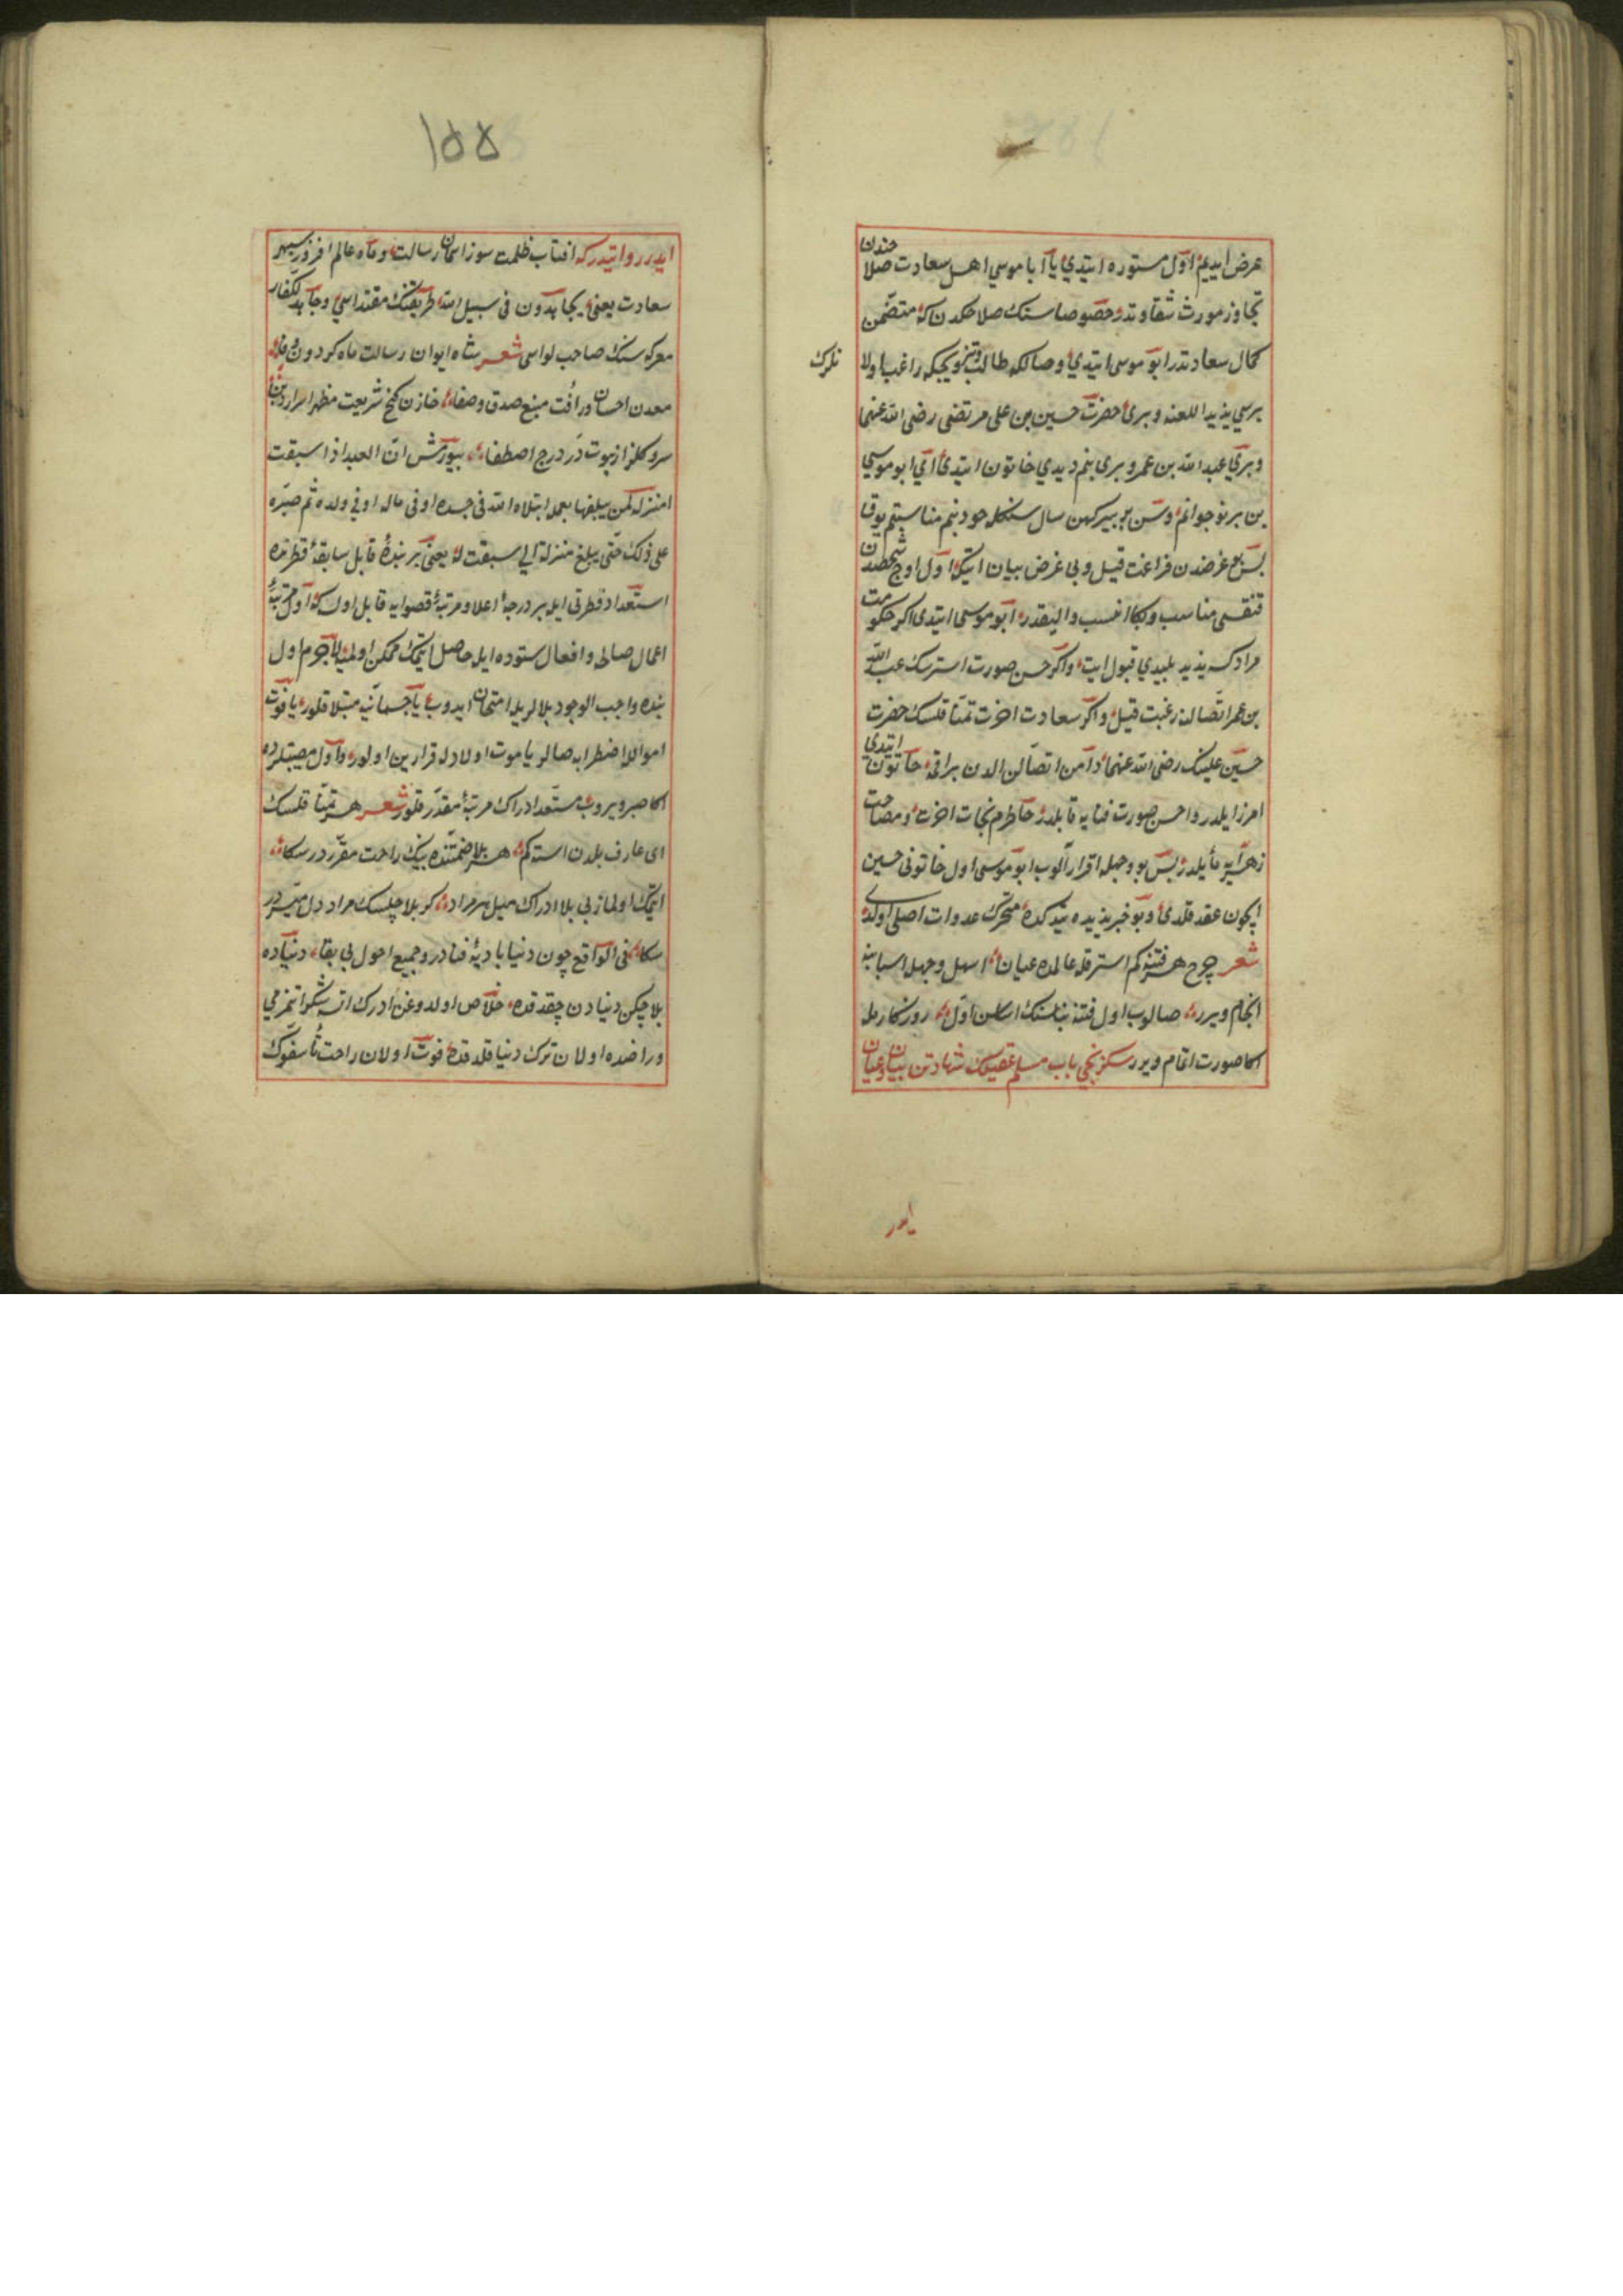 عرض ایدیم اول مستوره ایتدی یا ابا موسی اهل سعادت صلاحندن
تجاوز مورث شقاوتدر خصوصا سنك صلاحكدن كه متضمن
كمال سعادتدر ابو موسی ایتدی وصالكه طالب وتزویجكه راغب اولانلرك
بریسی یزید اللعنه وبری حضرت حسین بن علی مرتضی رضی الله عنهما
وبری عبد الله بن عمر وبری بنم دیدی خاتون ایتدی ای ابو موسی
بن بر نوجوانم وسن بر پیر كهن سال سنكله خود بنم مناسبتم یوقدر
بس غرضدن فراغت قیل وبی غرض بیان ایتكه اول اوچ شخصدن
قنقسی مناسب وبكا انسب والیقدر ابو موسی ایتدی اكر حكومت
مرادكسه یزید پلیدی قبول ایت واكر حسن صورت استرسك عبد الله
بن عمر اتصالنه رغبت قیل واكر سعادت اخرت تمنا قلسك حضرت
حسین علینك رضی الله عنهما دامن اتصالن الدن براقمه خاتون ایتدی
امر زایلدر واحسن صورت فنایه قابلدر خاطرم نجات اخرت ومصاحبت
زهرایه مایلدر بس بو وجهله اقرار آلوب ابو موسی اول خاتونی حسین
ایچون عقد قلدی وبو خبر یزیده یتدكده محرك عدوات اصلی اولدی
شعر چرخ هر فتنه كم استر قله عالمده عیان اسهل وجهله اسبابنه
انجام ویرر صالوب اول فتنه بناسنك اساسن اول روزكارله
اكا صورت اتمام ویرر سكزنجی باب مسلم عقیلك شهادتن بیان وعیان
ایدر
۱۵۵
ایدر روایتدر كه افتاب ظلمت سوز اسمان رسالت وماه عالم افروز سپهر
سعادت یعنی یجاهدون فی سبیل الله طریقنك مقتداسی وجاهد الكفار
معركه سنك صاحب لواسی شعر شاه ایوان رسالت ماه كردون وفا
معدن احسان ورافت منبع صدق وصفا خازن كنج شریعت مظهر اسرار دین
سرو كلزار نبوت در درج اصطفا بیورمش ان العبد اذا سبقت
له منزلة لم یبلغها بعمله ابتلاه الله فی جسده او فی ماله او فی ولده ثم صبره
علی ذلك حتی یبلغ منزلة التی سبقت له یعنی بر بندهٔ قابل سابقهٔ فطرتده
استعداد فطرتی ایله بر درجهٔ اعلا ومرتبهٔ قصوایه قابل اولسه كه اول مرتبهٔ
اعمال صالحه وافعال ستوده ایله حاصل ایتمك ممكن اولمیه لاجرم اول
بنده واجب الوجود بلالر یله امتحان ایدوب یا جسمانیه مبتلا قلور یا فوت
امواله اضطرابه صالور یا موت اولادله قرارین اولور واول مصیبتلرده
اكا صبر ویروب مستعد ادراك مرتبهٔ مقدر قلور شعر هر تمنا قلسك
ای عارف بلادن استه كم هر بلا ضمننده بیك راحت مقرردر سكا
ایتمك اولماز بی بلا ادراك میل هر مراد كر بلا چكسك مراد دل میسردر
سكا فی الواقع چون دنیا بادیهٔ فنادر وجمیع احول بی بقا دنیاده
بلا چكن دنیادن چقدقده خلاص اولدوغن ادرك ایتسه شكر ایتمزمی
وراضده اولان ترك دنیا قلدقده فوت اولان راحت تأسفوك